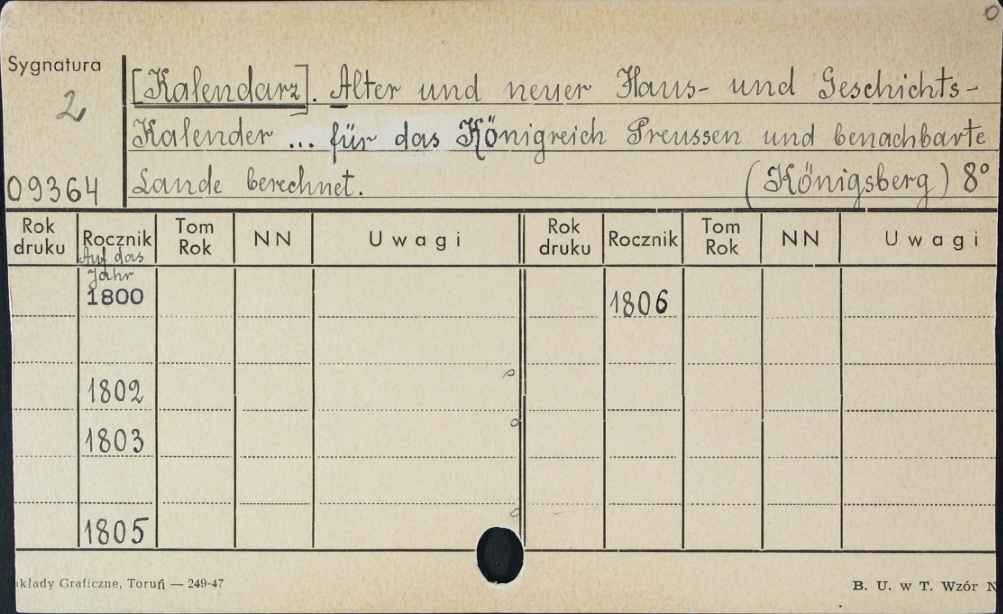 0
Sygnatura
2
09364
[Kalendarz]. Alter und neuer Haus- und Geschichts-
Kalender ... für das Königreich Preussen und benachbarte
Lande berechnet. (Königsberg) 8°
Rok druku Rocznik Tom Rok NN Uwagi Rok druku Rocznik Tom Rok NN Uwagi
Auf das
Jahr
1800 1806
1802
1803
1805
kłady Graficzne, Toruń — 249-47 B. U. w T. Wzór N